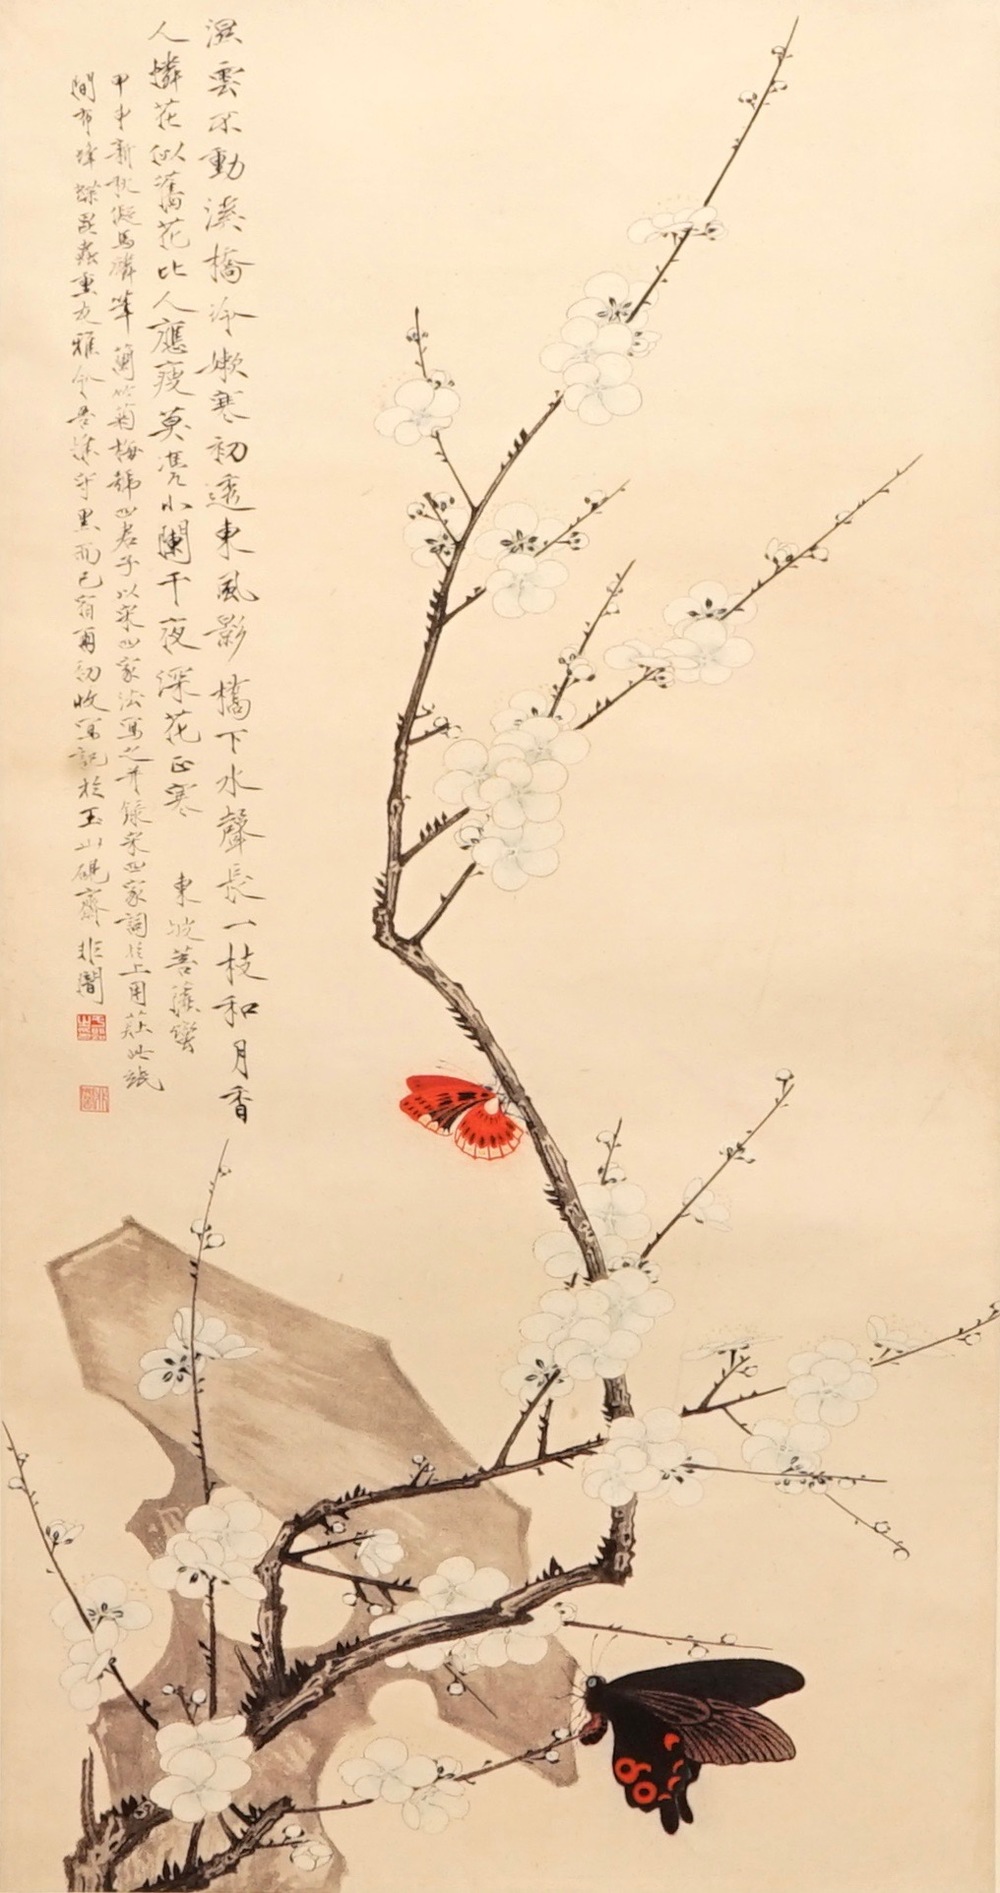 溼雲不動溪橋冷嫩寒初透東風影橋下水聲長一枝和月香
人憐花似舊花比人應瘦莫凭小闌干夜深花正寒 東坡菩薩蠻
甲申新秋擬馬麟筆蘭竹菊梅稱四君子以宋四家法寫之并錄宋四家詞於上用莊此紙
間有蜂蝶昆蟲重友雅令吾嫌守黑而已宿雨初收寫記於玉山硯齋 非闇